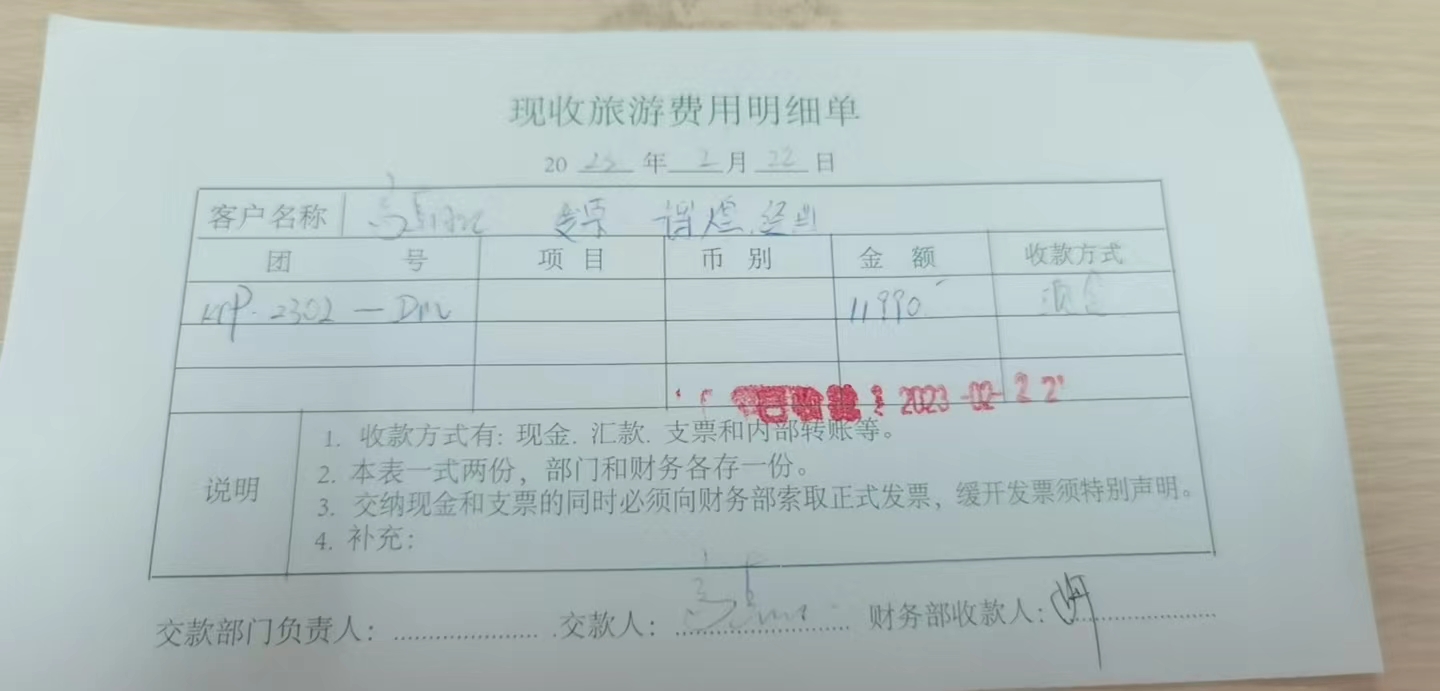 现收旅游费用明细单
20 23 年 2 月 22 日
客户名称
团 号 项 目 币 别 金 额 收款方式
2302 - 11990 现金
2023-02-22
说明
1. 收款方式有: 现金. 汇款. 支票和内部转账等。
2. 本表一式两份, 部门和财务各存一份。
3. 交纳现金和支票的同时必须向财务部索取正式发票, 缓开发票须特别声明。
4. 补充:
交款部门负责人: 交款人: 财务部收款人: